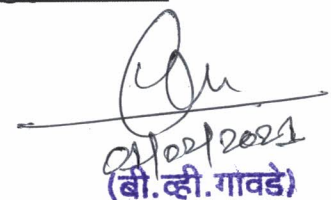 01/02/2021
(बी.व्ही.गावडे)